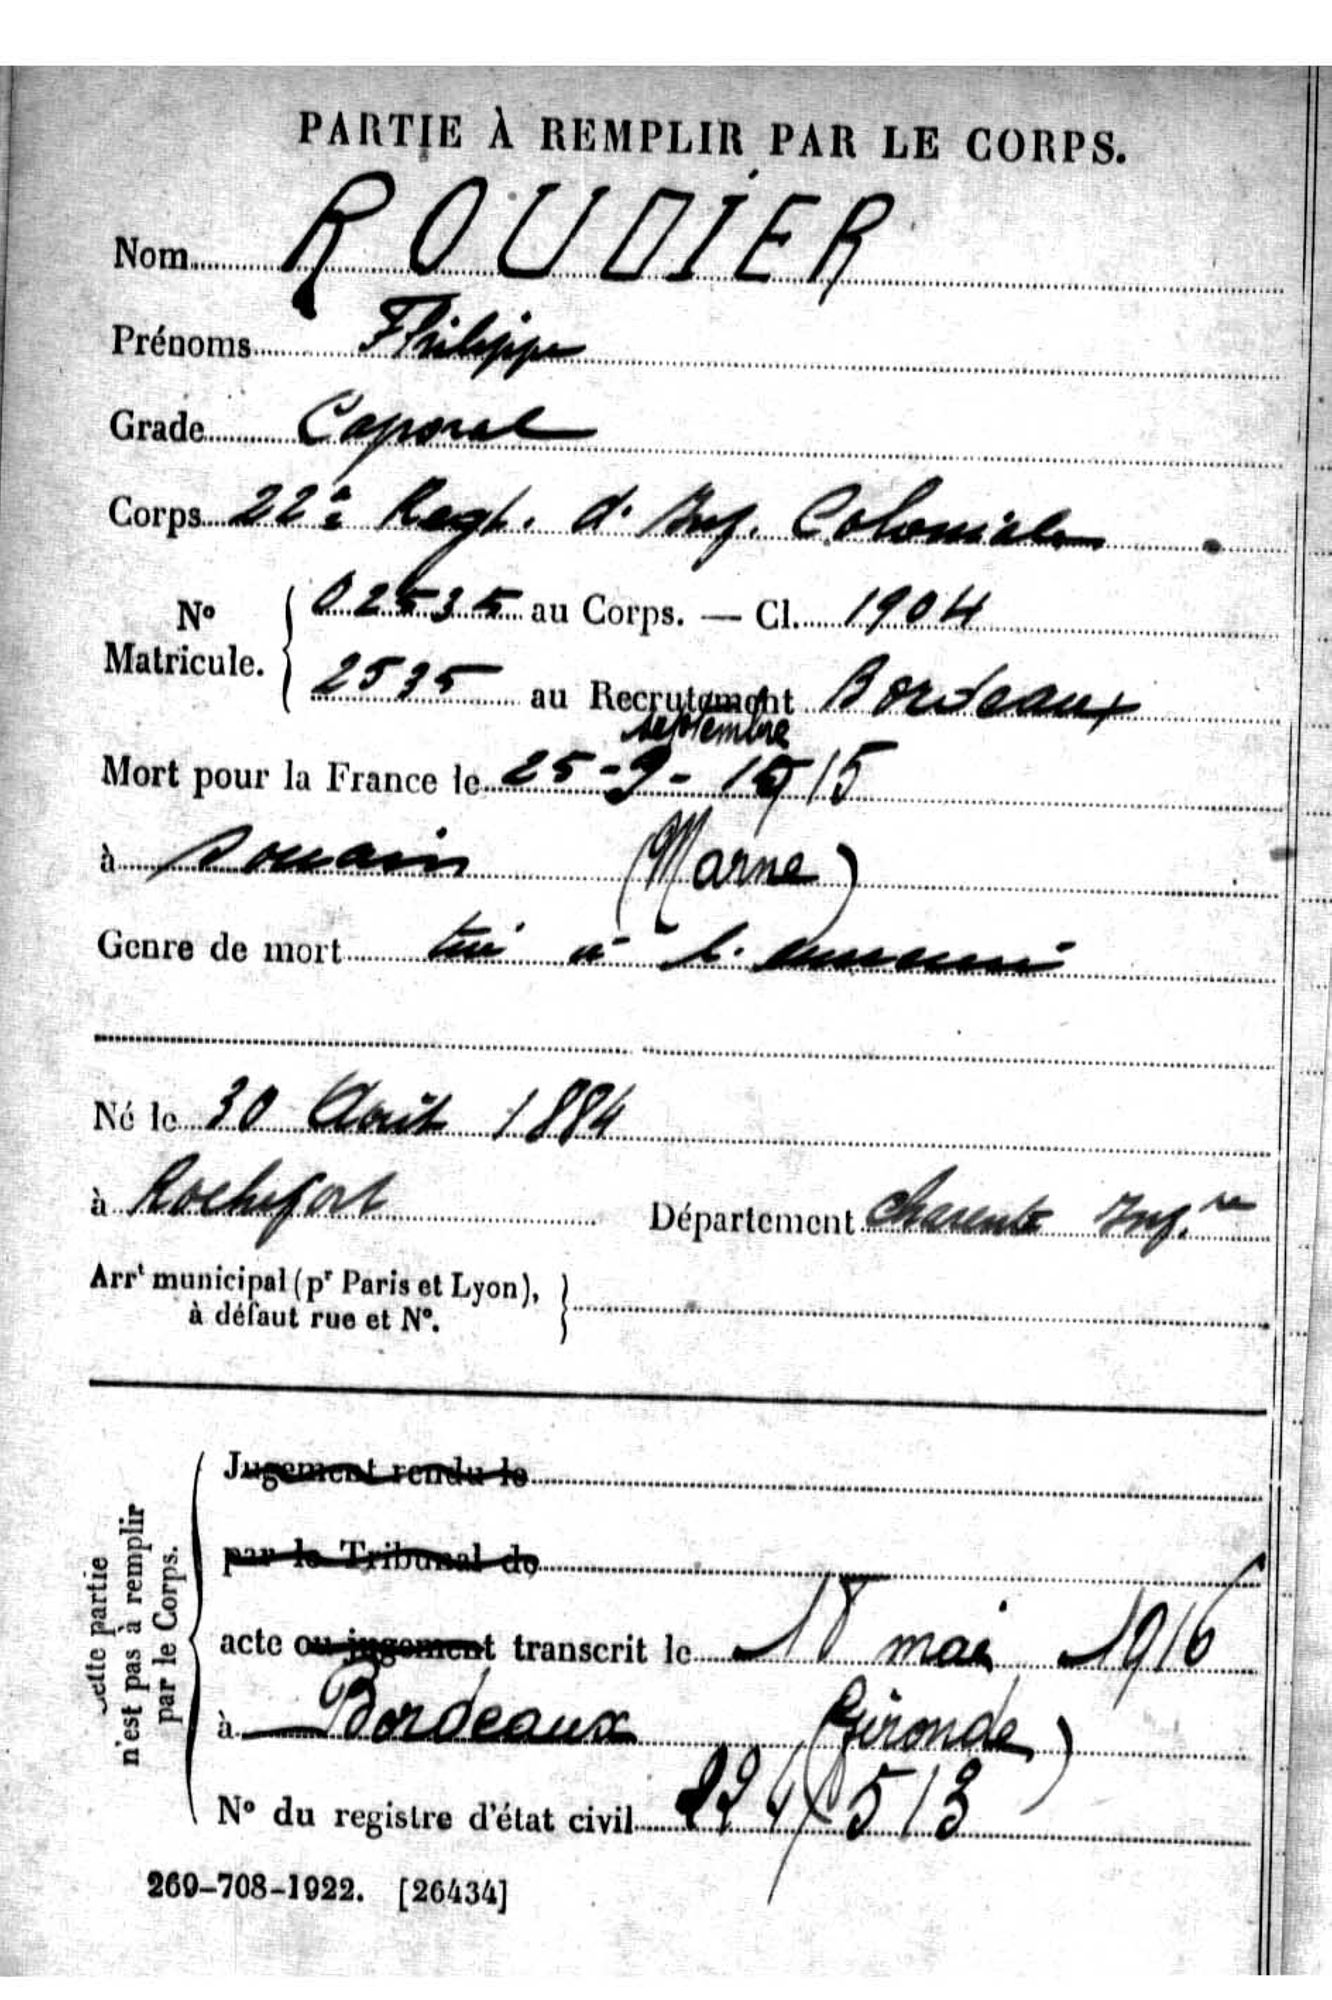 PARTIE À REMPLIR PAR LE CORPS.
Nom ROUDIER
Prénoms Philippe
Grade Caporal
Corps 22e Regt. d' Inf. Coloniale
No Matricule. 02535 au Corps. — Cl. 1904
2535 au Recrutement Bordeaux
septembre
Mort pour la France le 25-9-1915
à Souain (Marne)
Genre de mort tué à l'ennemi
Né le 30 Août 1884
à Rochefort Département Charente Inf.re
Arrt municipal (pr Paris et Lyon),
à défaut rue et No.
Cette partie
n'est pas à remplir
par le Corps.
Jugement rendu le
par le Tribunal de
acte ou jugement transcrit le 18 mai 1916
à Bordeaux (Gironde)
No du registre d'état civil 513
269-708-1922. [26434]